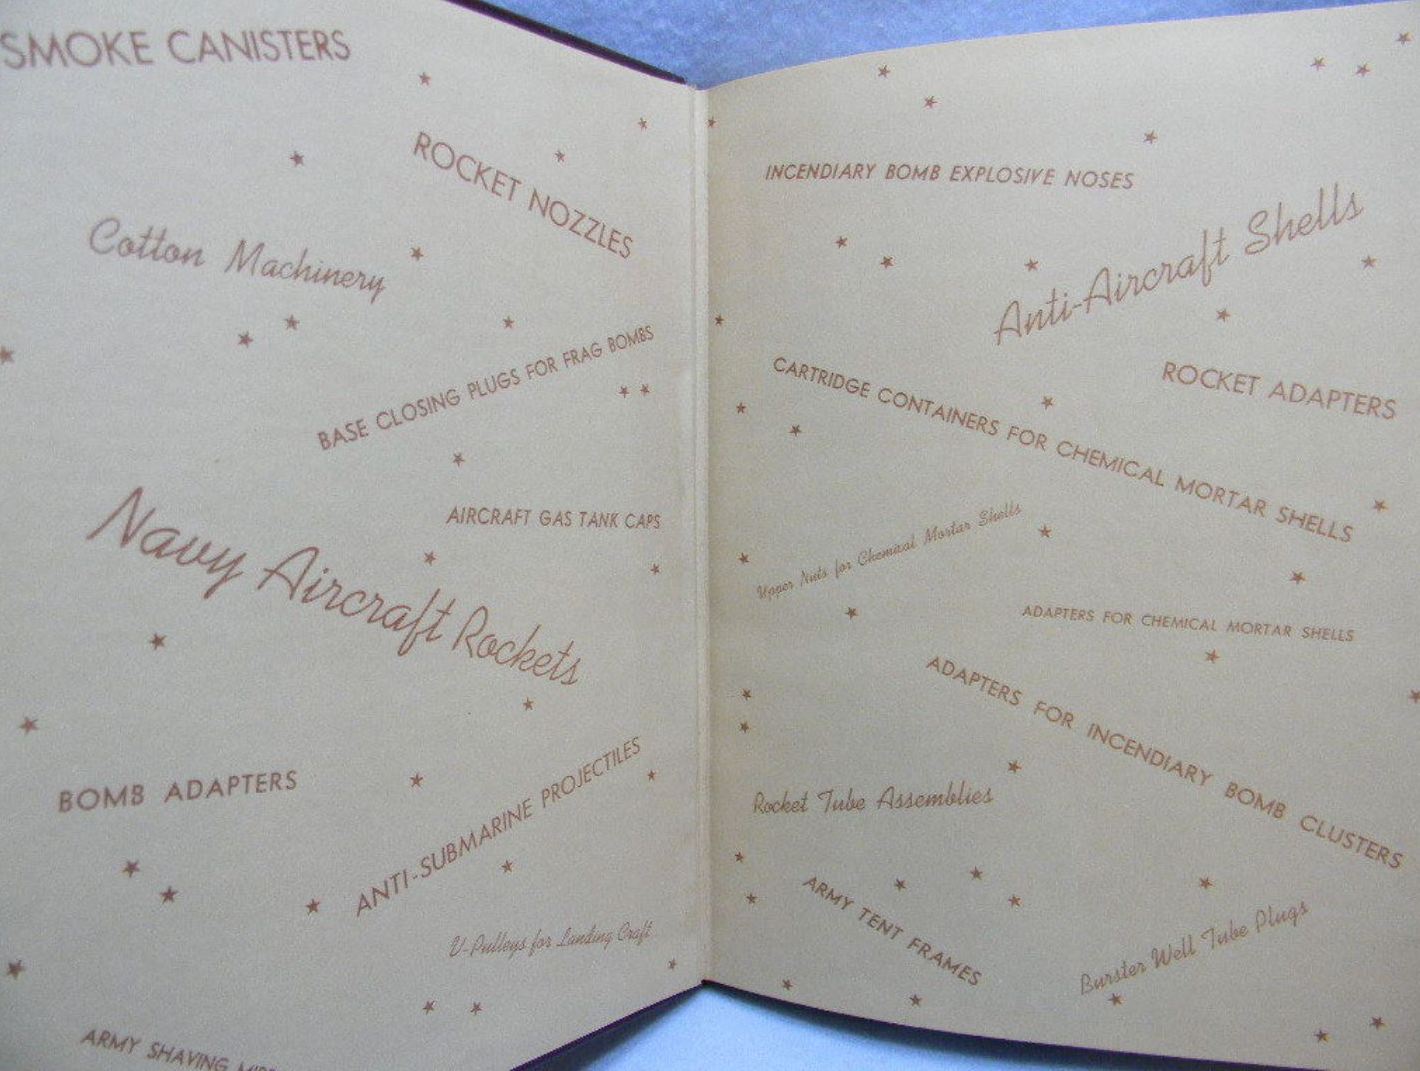 SMOKE CANISTERS
ROCKET NOZZLES
Cotton Machinery
BASE CLOSING PLUGS FOR FRAG BOMBS
AIRCRAFT GAS TANK CAPS
Navy Aircraft Rockets
BOMB ADAPTERS
ANTI-SUBMARINE PROJECTILES
V-Pulleys for Landing Craft
ARMY SHAVING
INCENDIARY BOMB EXPLOSIVE NOSES
Anti-Aircraft Shells
ROCKET ADAPTERS
CARTRIDGE CONTAINERS FOR CHEMICAL MORTAR SHELLS
Upper Nuts for Chemical Mortar Shells
ADAPTERS FOR CHEMICAL MORTAR SHELLS
ADAPTERS FOR INCENDIARY BOMB CLUSTERS
Rocket Tube Assemblies
ARMY TENT FRAMES
Burster Well Tube Plugs